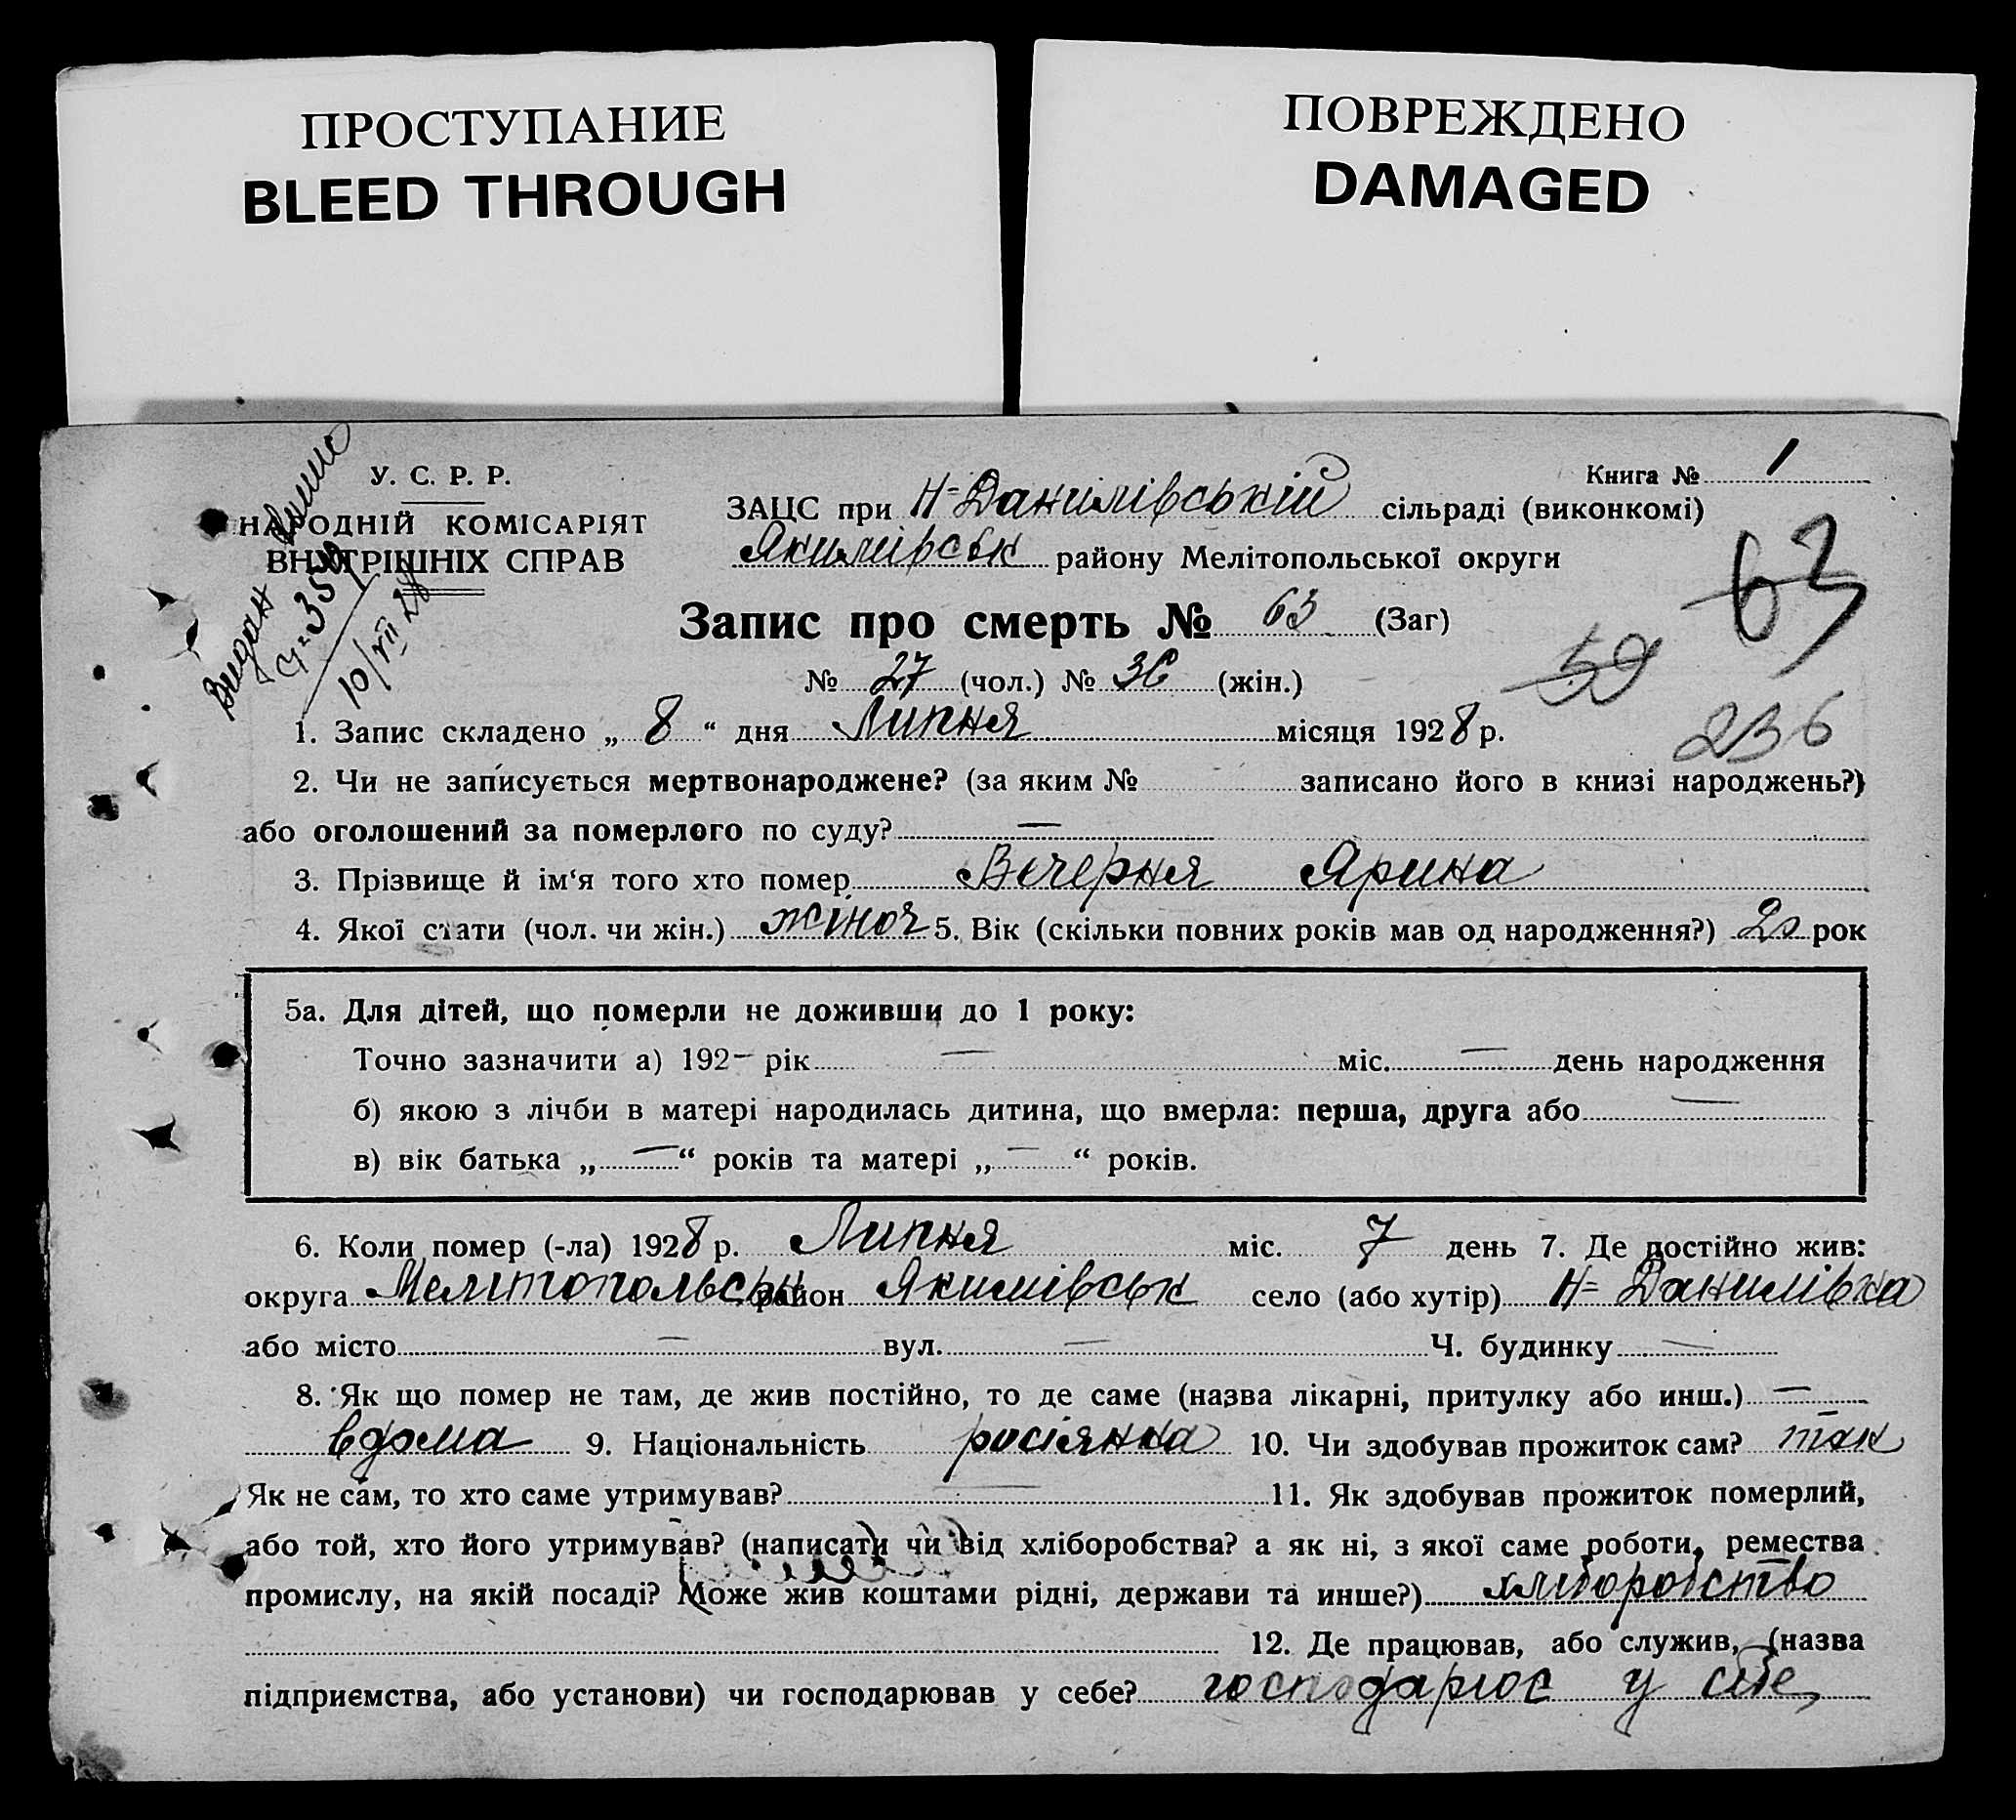 ПРОСТУПАНИЕ
BLEED THROUGH
ПОВРЕЖДЕНО
DAMAGED
У. С. Р. Р.
НАРОДНІЙ КОМІСАРІЯТ
ВНУТРІШНІХ СПРАВ
Видан
10/VII 28
Книга № 1
ЗАЦС при Н-Данилівській сільраді (виконкомі)
Якимівськ району Мелітопольської округи
63
Запис про смерть № 63 (Заг)
59
№ 27 (чол.) № 36 (жін.)
236
1. Запис складено „ 8 “ дня Липня місяця 1928 р.
2. Чи не записується мертвонароджене? (за яким № записано його в книзі народжень?)
або оголошений за померлого по суду? —
3. Прізвище й ім‘я того хто помер Вечерня Ярина
4. Якої стати (чол. чи жін.) жіноч 5. Вік (скільки повних років мав од народження?) рок
5а. Для дітей, що померли не доживши до 1 року:
Точно зазначити а) 192— рік — міс. — день народження
б) якою з лічби в матері народилась дитина, що вмерла: перша, друга або —
в) вік батька „ — “ років та матері „ — “ років.
6. Коли помер (-ла) 1928 р. Липня міс. 7 день 7. Де постійно жив:
округа Мелітопольськ район Якимівськ село (або хутір) Н-Данилівка
або місто — вул. — Ч. будинку —
8. Як що помер не там, де жив постійно, то де саме (назва лікарні, притулку або инш.) —
вдома 9. Національність росіянка 10. Чи здобував прожиток сам? так
Як не сам, то хто саме утримував? — 11. Як здобував прожиток померлий,
або той, хто його утримував? (написати чи від хліборобства? а як ні, з якої саме роботи, ремества
промислу, на якій посаді? Може жив коштами рідні, держави та инше?) хліборобство
12. Де працював, або служив, (назва
підприємства, або установи) чи господарював у себе? господарює у себе